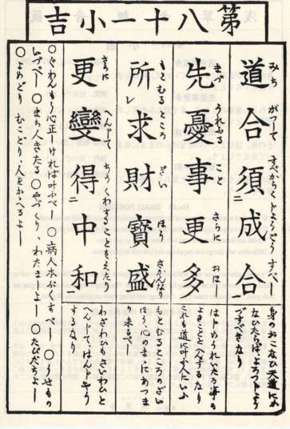 第八十一小吉
道合須成合
先憂事更多
所求財寶盛
更變得中和
身のおこなひ天道にか
なひたらばよろづ
すべきなり
はじめうれいたる事も
よきことへんずるなり
これも道に叶人にいふ
もとむるところのざい
ほう、心のまゝにあつま
り来るべし
わざわひもさいわひと
へんじて、はんじやう
するなり
○ぐわんもう心正しければ叶ふべし ○病人本ぷくすべし ○うせもの
いづべし ○まち人きたる ○やづくり、わたましよし ○たびだちよし
○よめどり むこどり、人をかゝへるよし